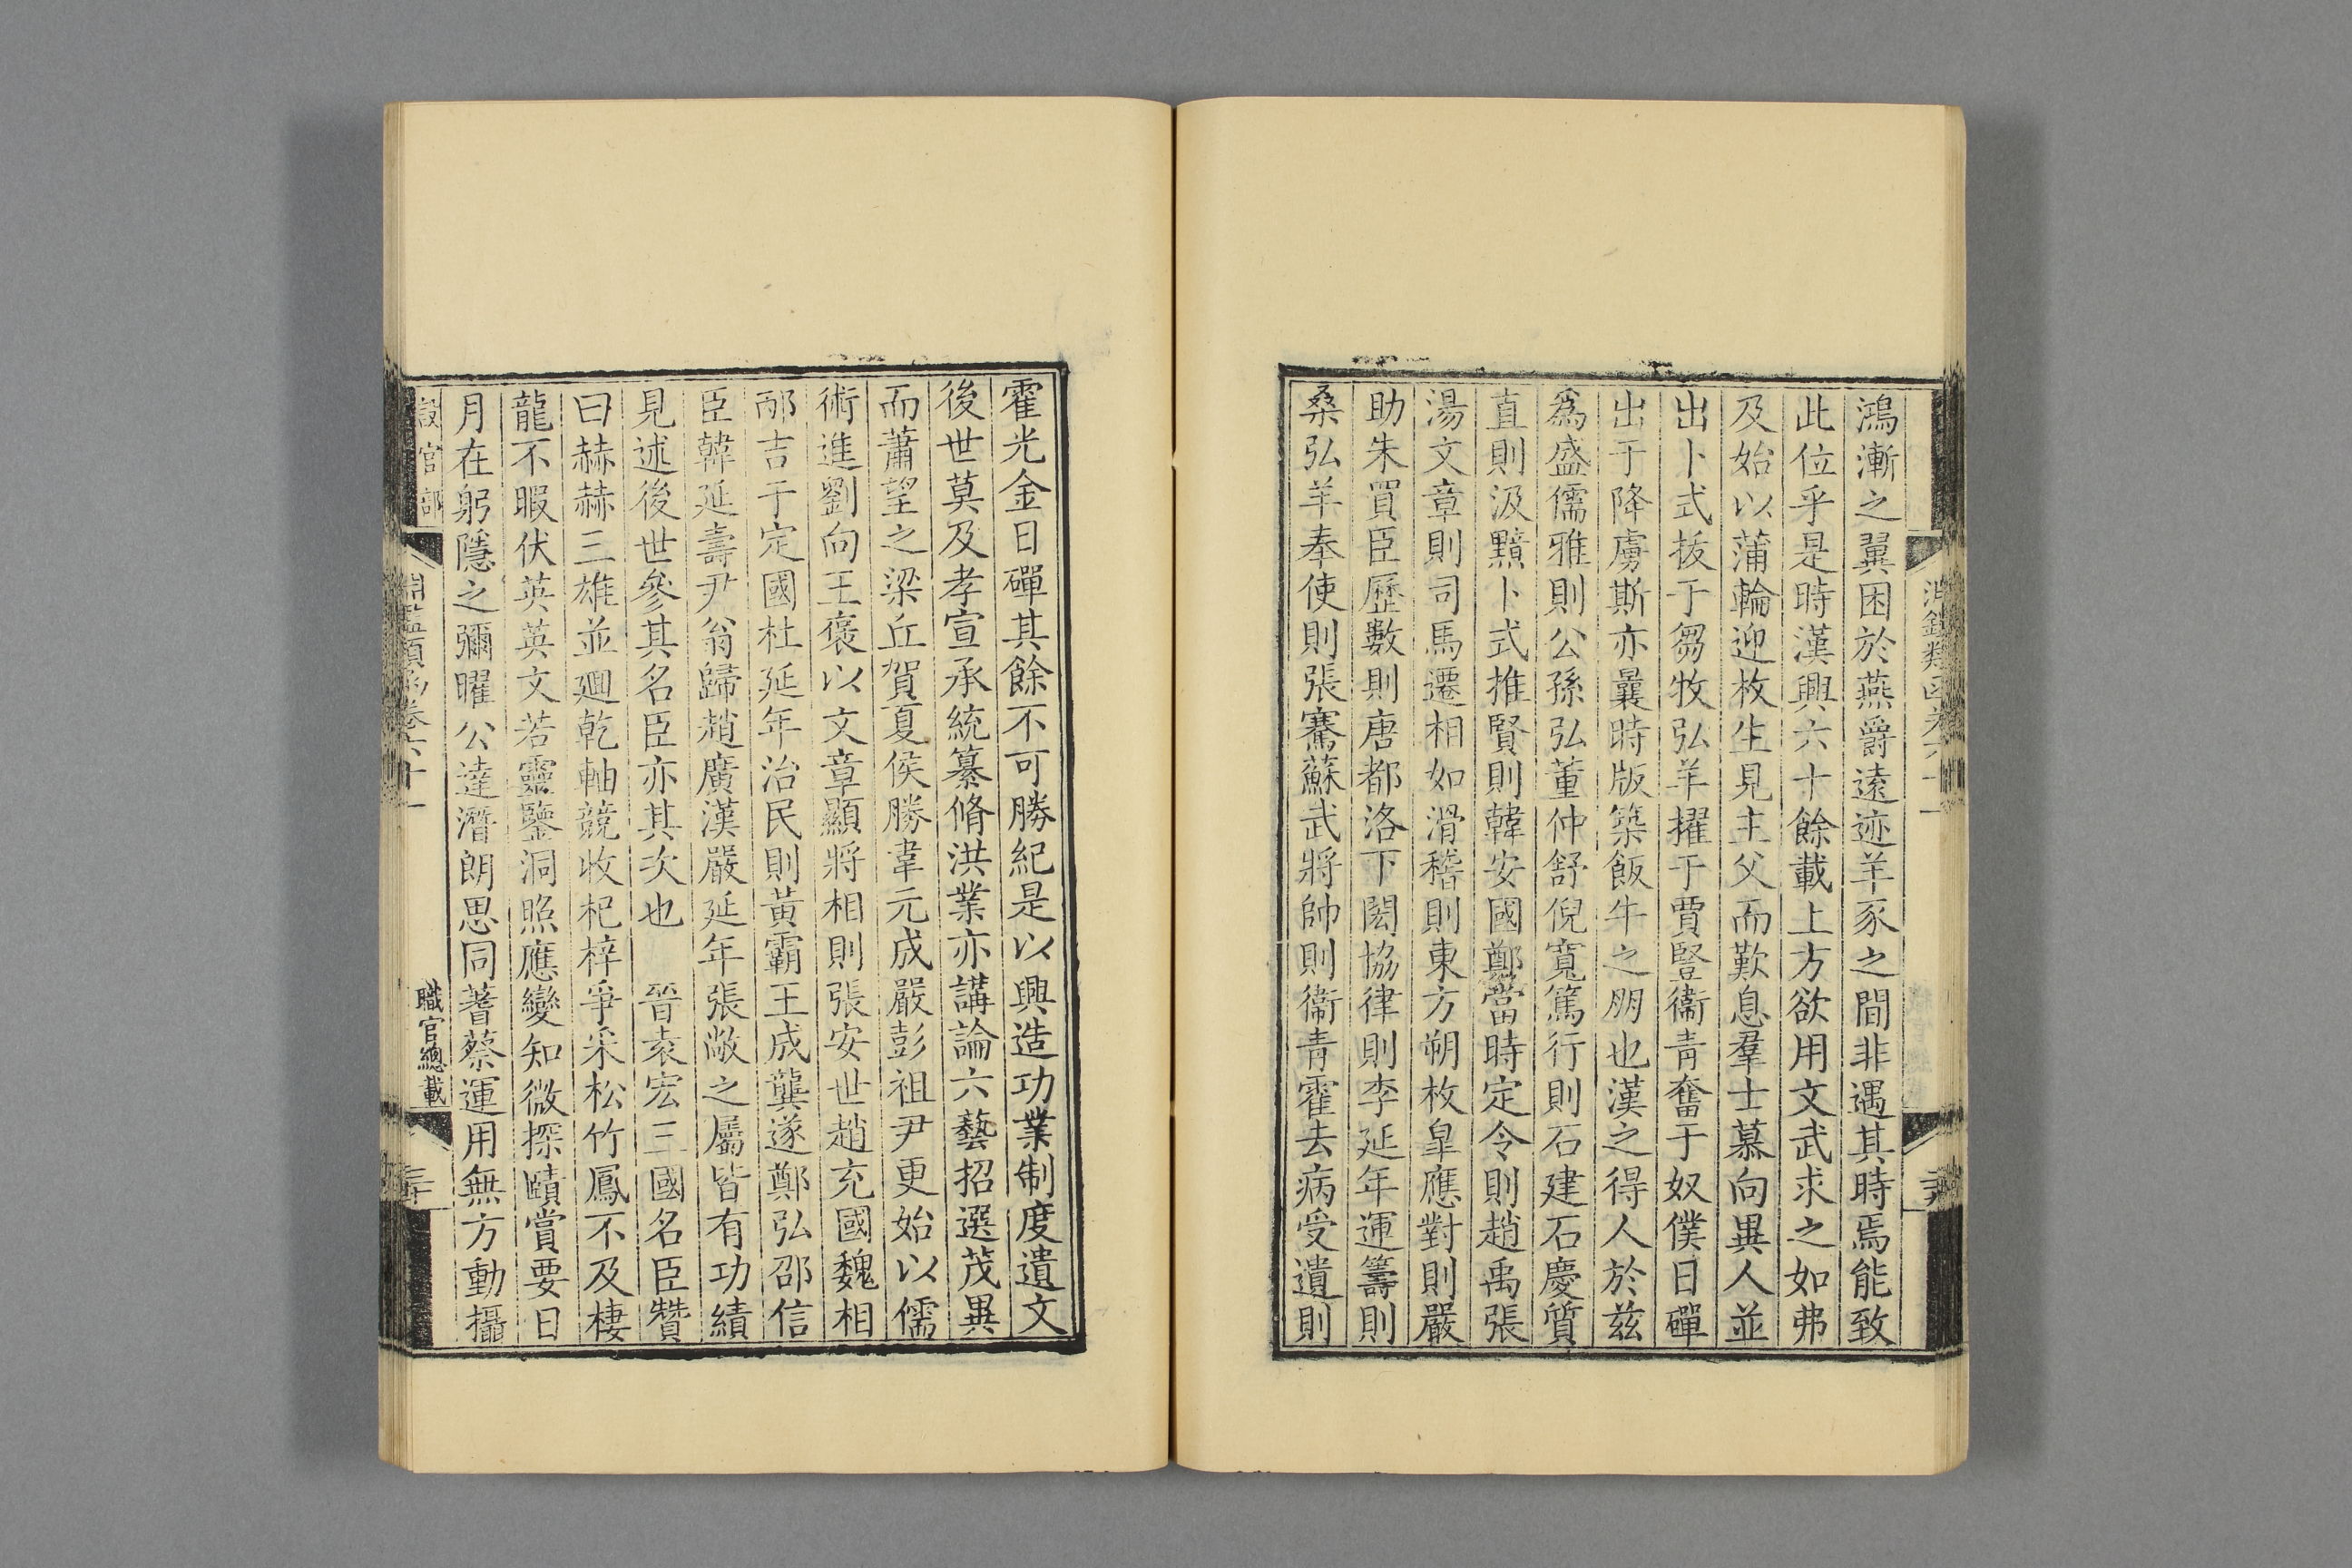 鴻漸之翼困於燕爵遠迹羊豕之間非遇其時焉能致
此位乎是時漢興六十餘載上方欲用文武求之如弗
及始以蒲輪迎枚生見主父而歎息羣士慕向異人並
出卜式拔于芻牧弘羊擢于賈豎衞青奮于奴僕日磾
出于降虜斯亦曩時版築飯牛之朋也漢之得人於兹
爲盛儒雅則公孫弘董仲舒倪寬篤行則石建石慶質
直則汲黯卜式推賢則韓安國鄭當時定令則趙禹張
湯文章則司馬遷相如滑稽則東方朔枚皐應對則嚴
助朱買臣歷數則唐都洛下閎協律則李延年運籌則
桑弘羊奉使則張騫蘇武將帥則衞青霍去病受遺則
霍光金日磾其餘不可勝紀是以興造功業制度遺文
後世莫及孝宣承統纂脩洪業亦講論六藝招選茂異
而蕭望之梁丘賀夏侯勝韋元成嚴彭祖尹更始以儒
術進劉向王襃以文章顯將相則張安世趙充國魏相
邴吉于定國杜延年治民則黃霸王成龔遂鄭弘邵信
臣韓延壽尹翁歸趙廣漢嚴延年張敞之屬皆有功績
見述後世參其名臣亦其次也 晉袁宏三國名臣贊
曰赫赫三雄並廻乾軸競收杞梓爭采松竹鳳不及棲
龍不暇伏英英文若靈鑒洞照應變知微探賾賞要日
月在躬隱之彌曜公達潛朗思同蓍蔡運用無方動攝
職官總載